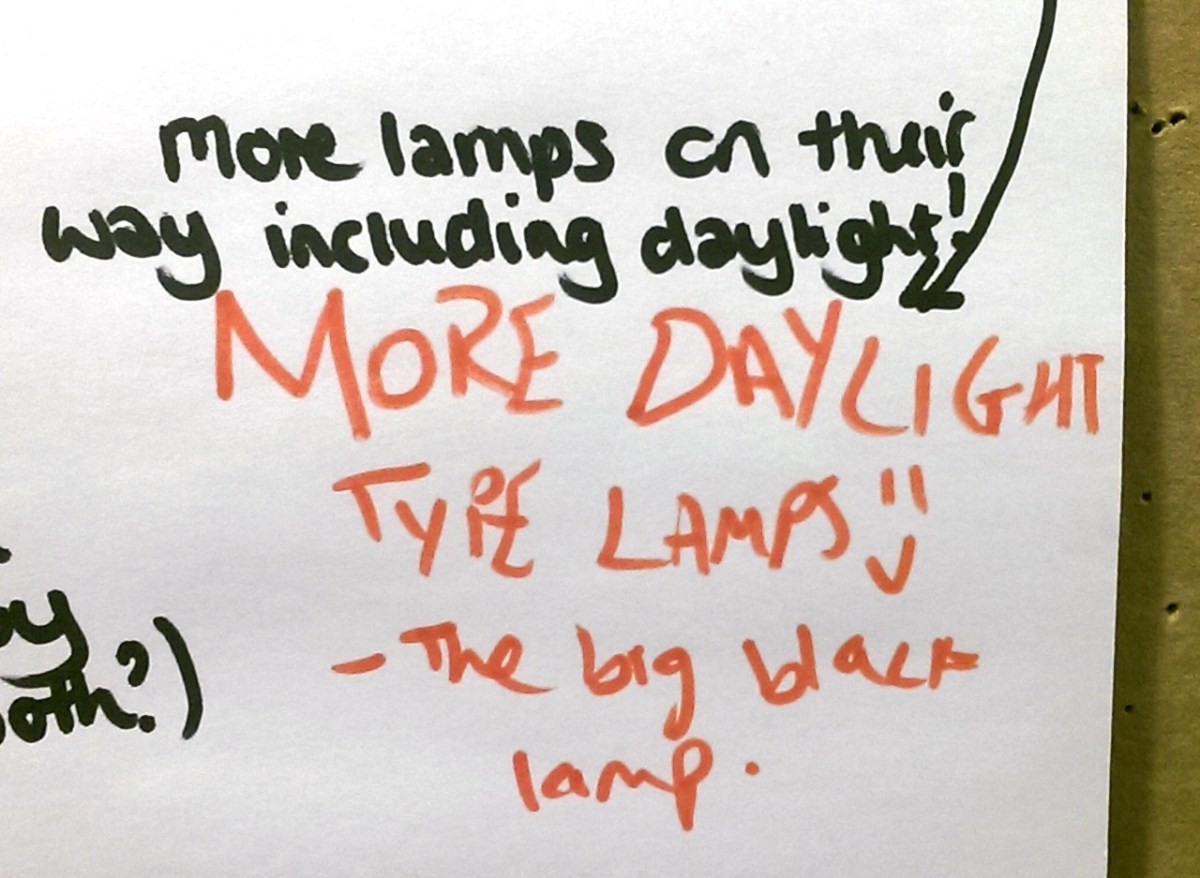 More lamps on their
way including daylight!
MORE DAYLIGHT
TYPE LAMPS
- The big black
lamp.
oth?)